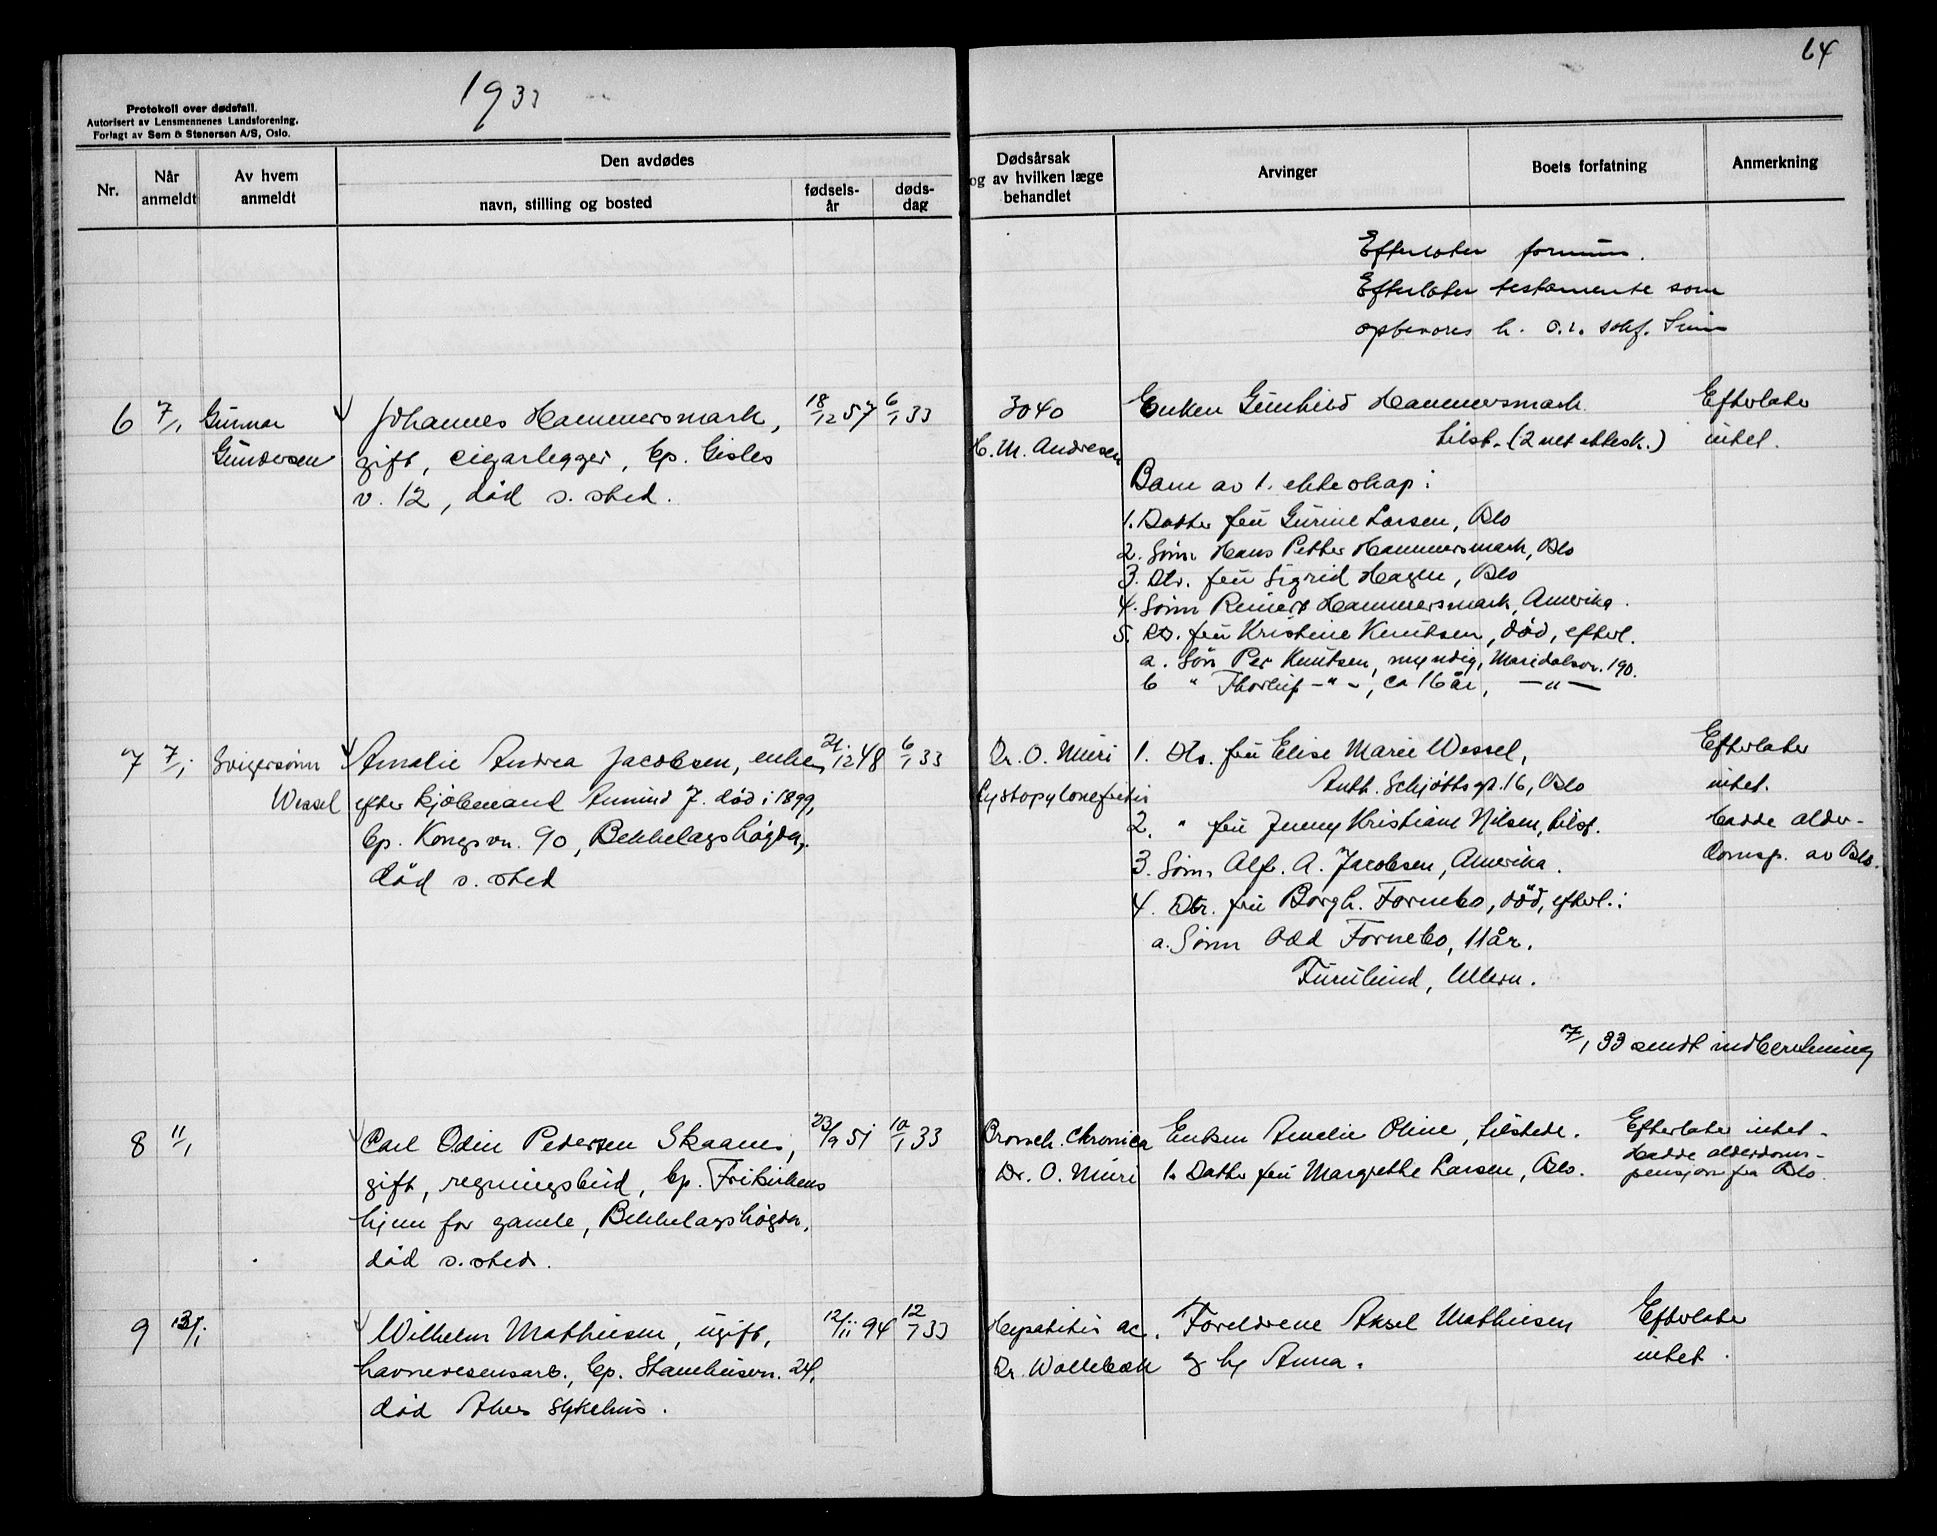 64
1933
Protokoll over dødsfall.
Autorisert av Lensmennenes Landsforening.
Forlagt av Sem & Stenersen A/S, Oslo.
Nr.
Når anmeldt
Av hvem anmeldt
Den avdødes
navn, stilling og bosted
fødsels-år
døds-dag
Dødsårsak
og av hvilken læge
behandlet
Arvinger
Boets forfatning
Anmerkning
Efterlater formue.
Efterlater testamente som
opbevares h. o.r. sakf.
6 7/1 Gunnar Gundersen
Johannes Hammersmark,
gift, cigarlegger, bp. Gisles
v. 12, död s. sted.
18/12 57 6/1 33
3040
H. M. Andresen
Enken Gunhild Hammersmark
tilst. (2net ektesk.)
Barn av 1. ekteskap:
1. Datter fru Gurine Larsen, Oslo
2. Sönn Hans Petter Hammersmark, Oslo
3. Dtr. fru Sigrid Hagen, Oslo
4. Sönn Reinert Hammersmark, Amerika.
5. Dtr. fru Kristine Knutsen, död, efterl.
a. Sön Per Knutsen, myndig, Maridalsvn. 190.
b " Thorleif -"-, ca 16 år, -"-
Efterlater
intet.
7 7/1 Svigersönn Wessel
Amalie Andrea Jacobsen, enke
efter kjöbmand Amund J. död i 1899,
bp. Kongsvn. 90, Bekkelagshögda,
död s. sted
21/12 48 6/1 33
Dr. O. Muri
Cystopylonefritis
1. Dtr. fru Elise Marie Wessel,
Anth. Schjöttsgt. 16, Oslo
2. " fru Jenny Kristiane Nilsen, tilst.
3. Sönn Alf. A. Jacobsen, Amerika.
4. Dtr. fru Borgh. Fornebo, död, efterl.:
a. Sönn Odd Fornebo, 11 år.
Furulund, Ullern.
Efterlater
intet.
Hadde alder-
domsp. av Oslo.
7/1 33 sendt indberetning
8 11/1
Carl Odin Pedersen Skaanes,
gift, regningsbud, bp. Frikirkens
hjem for gamle, Bekkelagshögda,
död s. sted.
23/9 51 10/1 33
Bronch. Chronica
Dr. O. Muri
Enken Amalie Oline, tilstede.
1. Datter fru Margrethe Larsen, Oslo.
Efterlater intet -
Hadde alderdoms-
pensjon fra Oslo.
9 13/1
Wilhelm Mathiesen, ugift,
havnevesensarb., bp. Stamhusvn. 24,
död Akers Sykehus.
12/11 94 12/1 33
Hepatitis ac.
Dr. Wollebæk
Foreldrene Aksel Mathiesen
og h Anna.
Efterlater
intet.